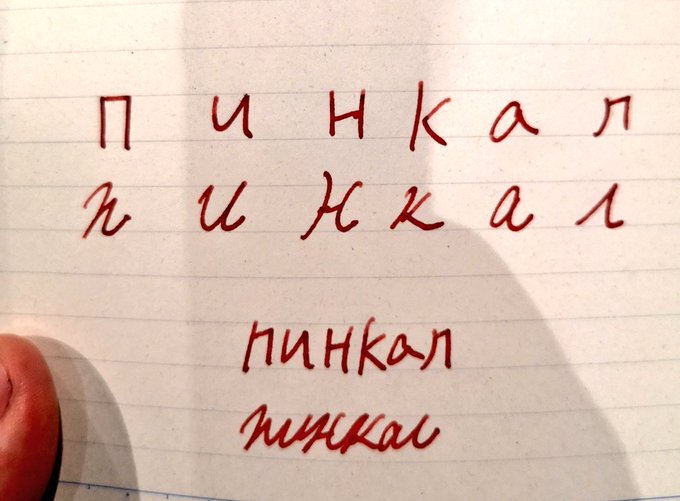 п и н к а л
п и н к а л
пинкал
пинкал